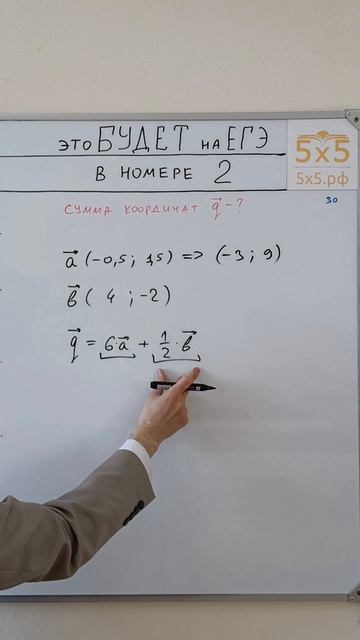 ЭТО БУДЕТ НА ЕГЭ
В НОМЕРЕ 2
5x5
5x5.рф
30
СУММА КООРДИНАТ q⃗ - ?
a⃗ (-0,5; 1,5) => (-3; 9)
b⃗ ( 4 ; -2)
q⃗ = 6·a⃗ + 1/2 · b⃗